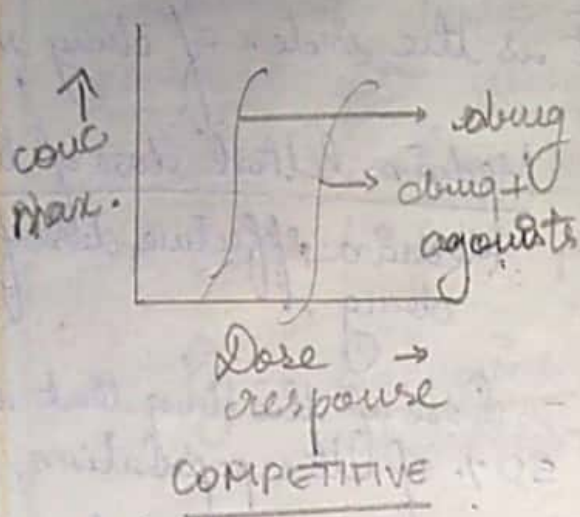 conc
Max.
drug
drug +
agonists
Dose →
response
COMPETITIVE